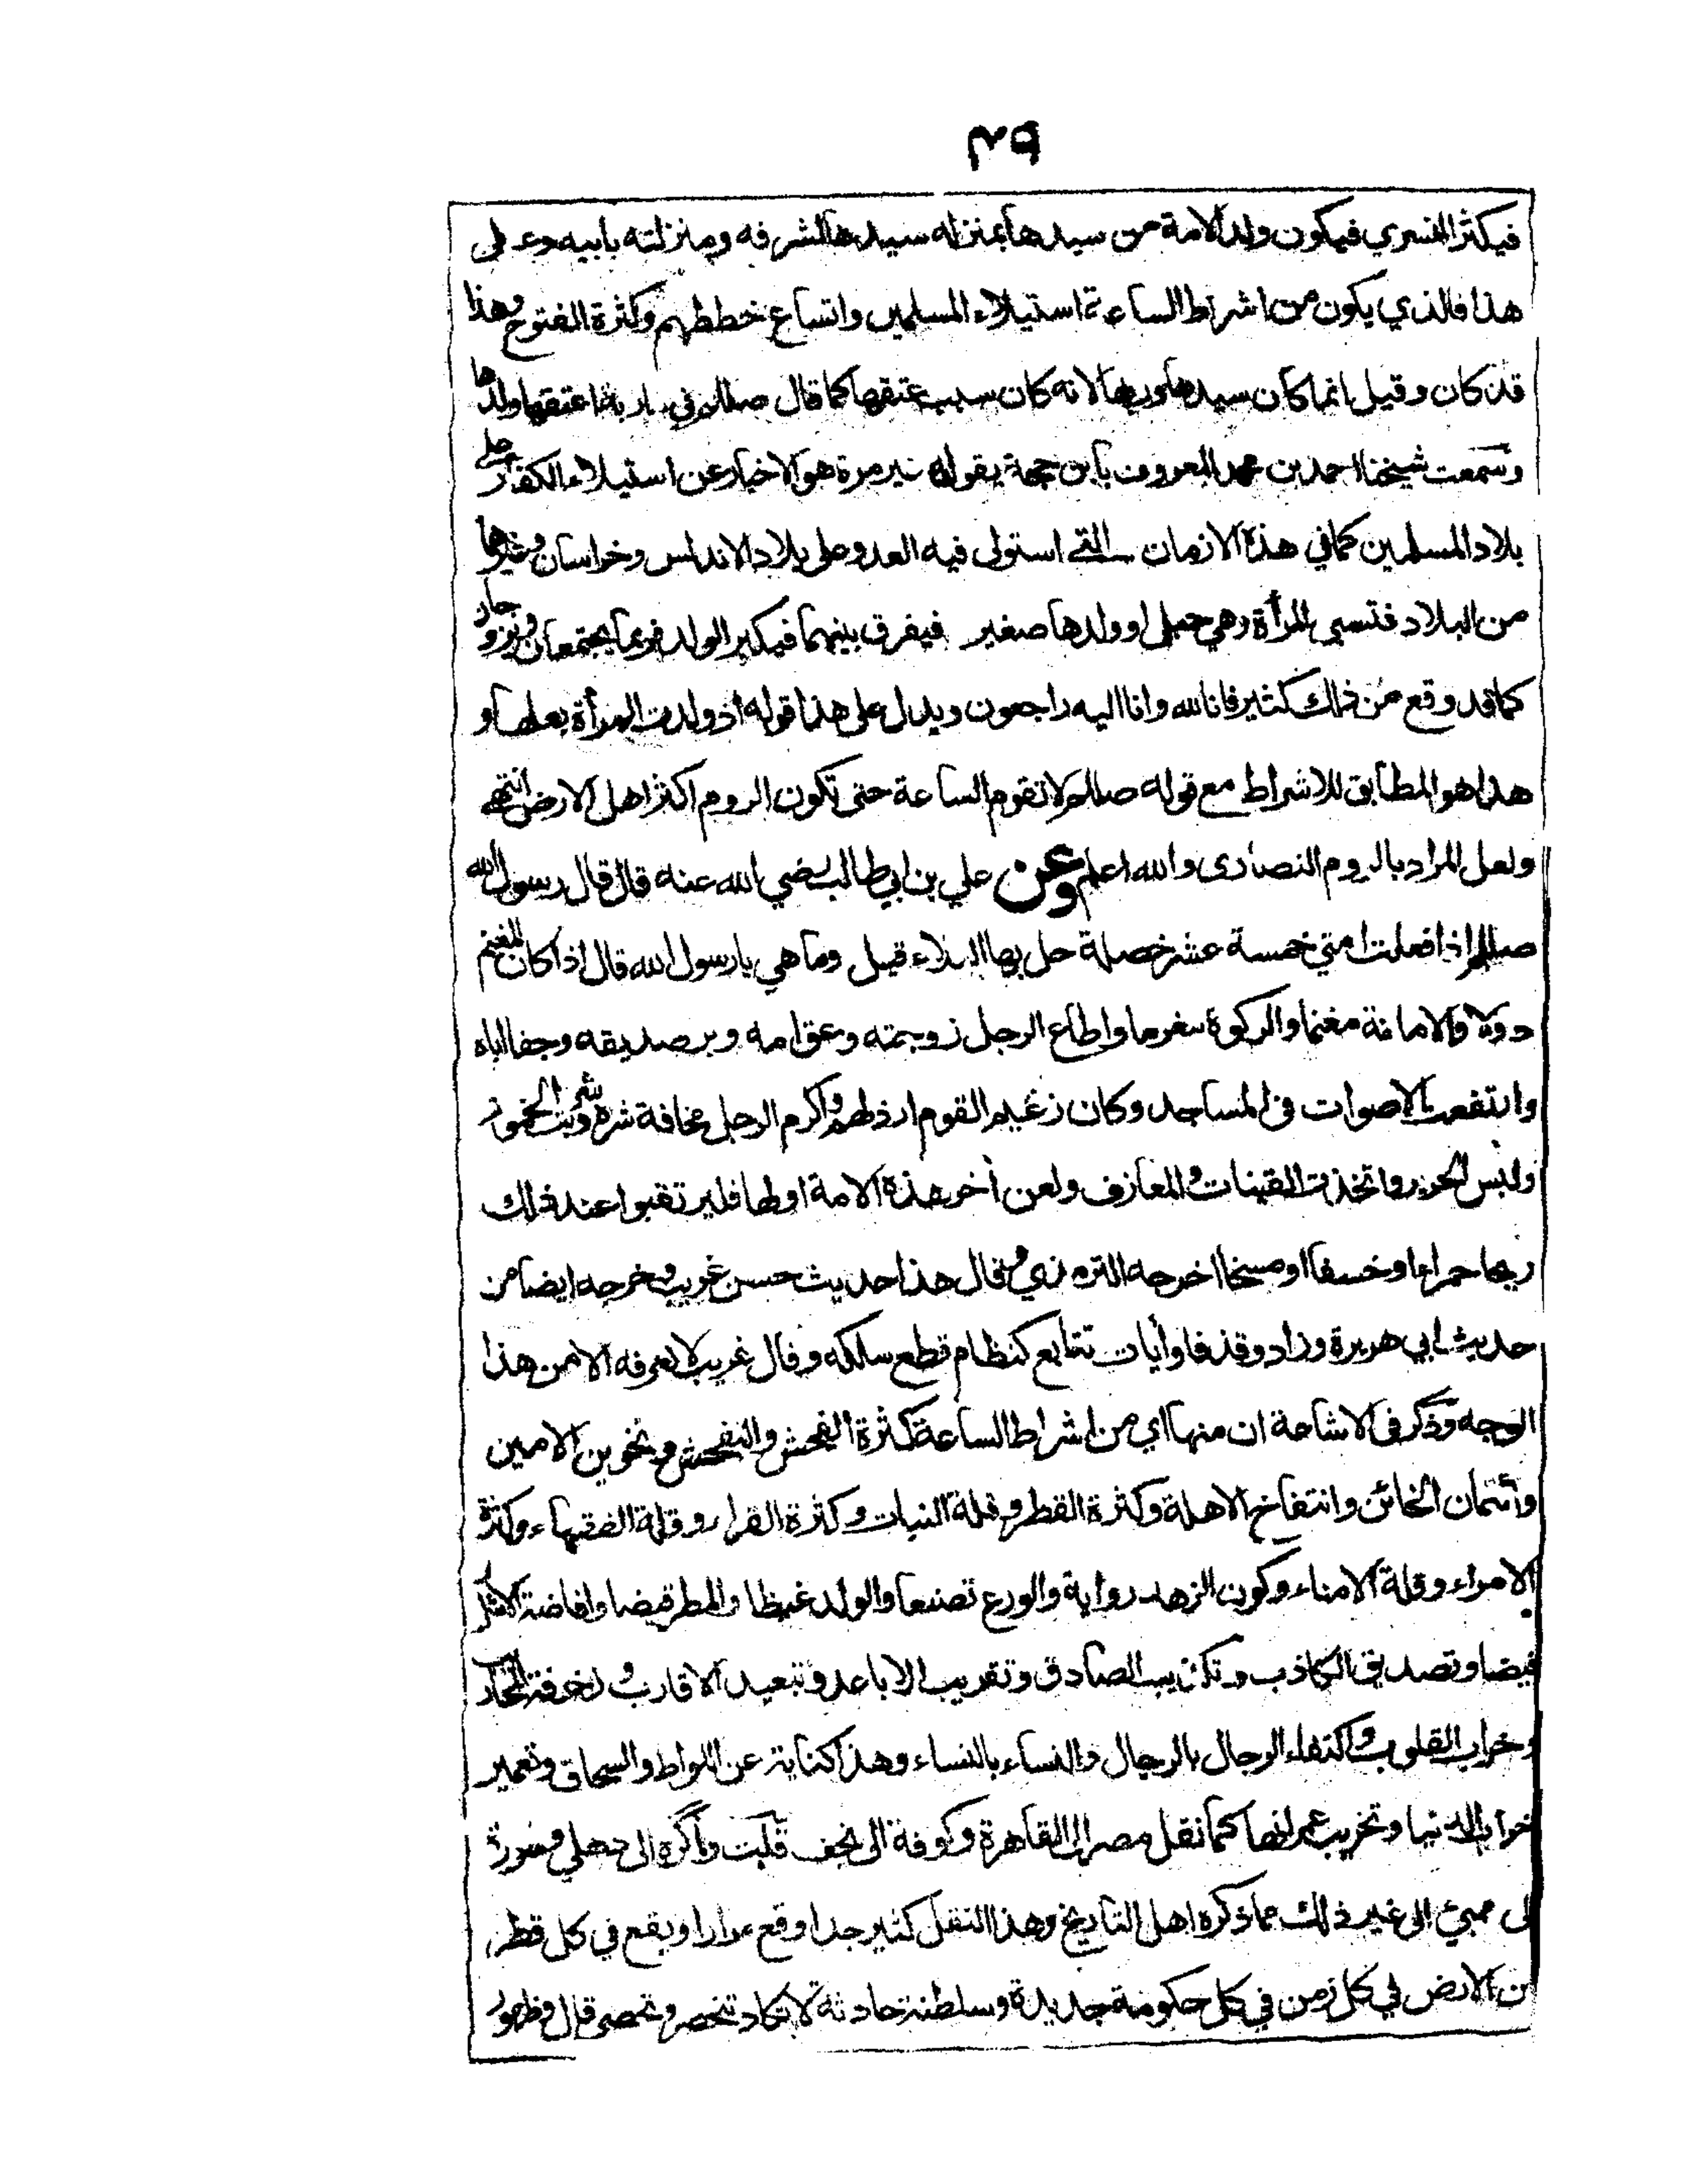 ٣٩
فيكثر التسري فيكون ولد الامة من سيدها بمنزلة سيدها لشرفه ومنزلته بابيه وعلى
هذا فالذي يكون من اشراط الساعة استيلاء المسلمين واتساع خططهم وكثرة الفتوح وهذا
قد كان وقيل انما كان سيدها وربها لانه كان سبب عتقها كما قال صللم في مارية اعتقها ولدها
وسمعت شيخنا احمد بن محمد المعروف بابن حجة يقوله غير مرة هو الاخبار عن استيلاء الكفار على
بلاد المسلمين كما في هذة الازمان التي استولى فيه العدو على بلاد الاندلس وخراسان وغيرها
من البلاد فتسبى المرأة وهي حبلى او ولدها صغير فيفرق بينهما فيكبر الولد فربما يجتمعان ويتزوجان
كما قد وقع من ذلك كثير فانا لله وانا اليه راجعون ويدل على هذا قوله اذ ولدت المرأة بعلها و
هذا هو المطابق للاشراط مع قوله صللم لا تقوم الساعة حتى تكون الروم اكثر اهل الارض انتهى
ولعل المراد بالروم النصارى والله اعلم وعن علي بن ابي طالب رضي الله عنه قال قال رسول الله
صللم اذا فعلت امتي خمسة عشر خصلة حل بها البلاء قيل وما هي يا رسول الله قال اذا كان المغنم
دولا والامانة مغنما والزكوة مغرما واطاع الرجل زوجته وعق امه وبر صديقه وجفا اباه
وارتفعت الاصوات في المساجد وكان زعيم القوم ارذلهم واكرم الرجل مخافة شره وشربت الخمور
ولبس الحرير واتخذت القينات والمعازف ولعن أخر هذة الامة اولها فليرتقبوا عند ذلك
ريحا حمراء او خسفا او مسخا اخرجه الترمذي وقال هذا حديث حسن غريب وخرجه ايضا من
حديث ابي هريرة وزاد وقذفا وأيات تتابع كنظام قطع سلكه وقال غريب لا نعرفه الا من هذا
الوجه وذكر في الاشاعة ان منها اي من اشراط الساعة كثرة الفحش والتفحش وتخوين الامين
وأتمان الخائن وانتفاخ الاهلة وكثرة القطر وقلة النبات وكثرة القراء وقلة الفقهاء وكثرة
الامراء وقلة الامناء وكون الزهد رواية والورع تصنعا والولد غيظا والمطر قيضا وافاضة الاشرار
فيضا وتصديق الكاذب وتكذيب الصادق وتقريب الاباعد وتبعيد الاقارب وزخرفة
وخراب القلوب واكتفاء الرجال بالرجال والنساء بالنساء وهذا كناية عن اللواط والسحاق وتعمير
خراب الدنيا وتخريب عمرانها كما نقل مصر الى القاهرة وكوفة الى نجف قلت وأگره الى دهلي وسورة
الى ممبئ الى غير ذلك مما ذكره اهل التاريخ وهذا النقل كثير جدا وقع مرارا ويقع في كل قطر
من الارض في كل زمن في كل حكومة جديدة وسلطنة حادثة لا تكاد تنحصر وتحصى قال وظهور